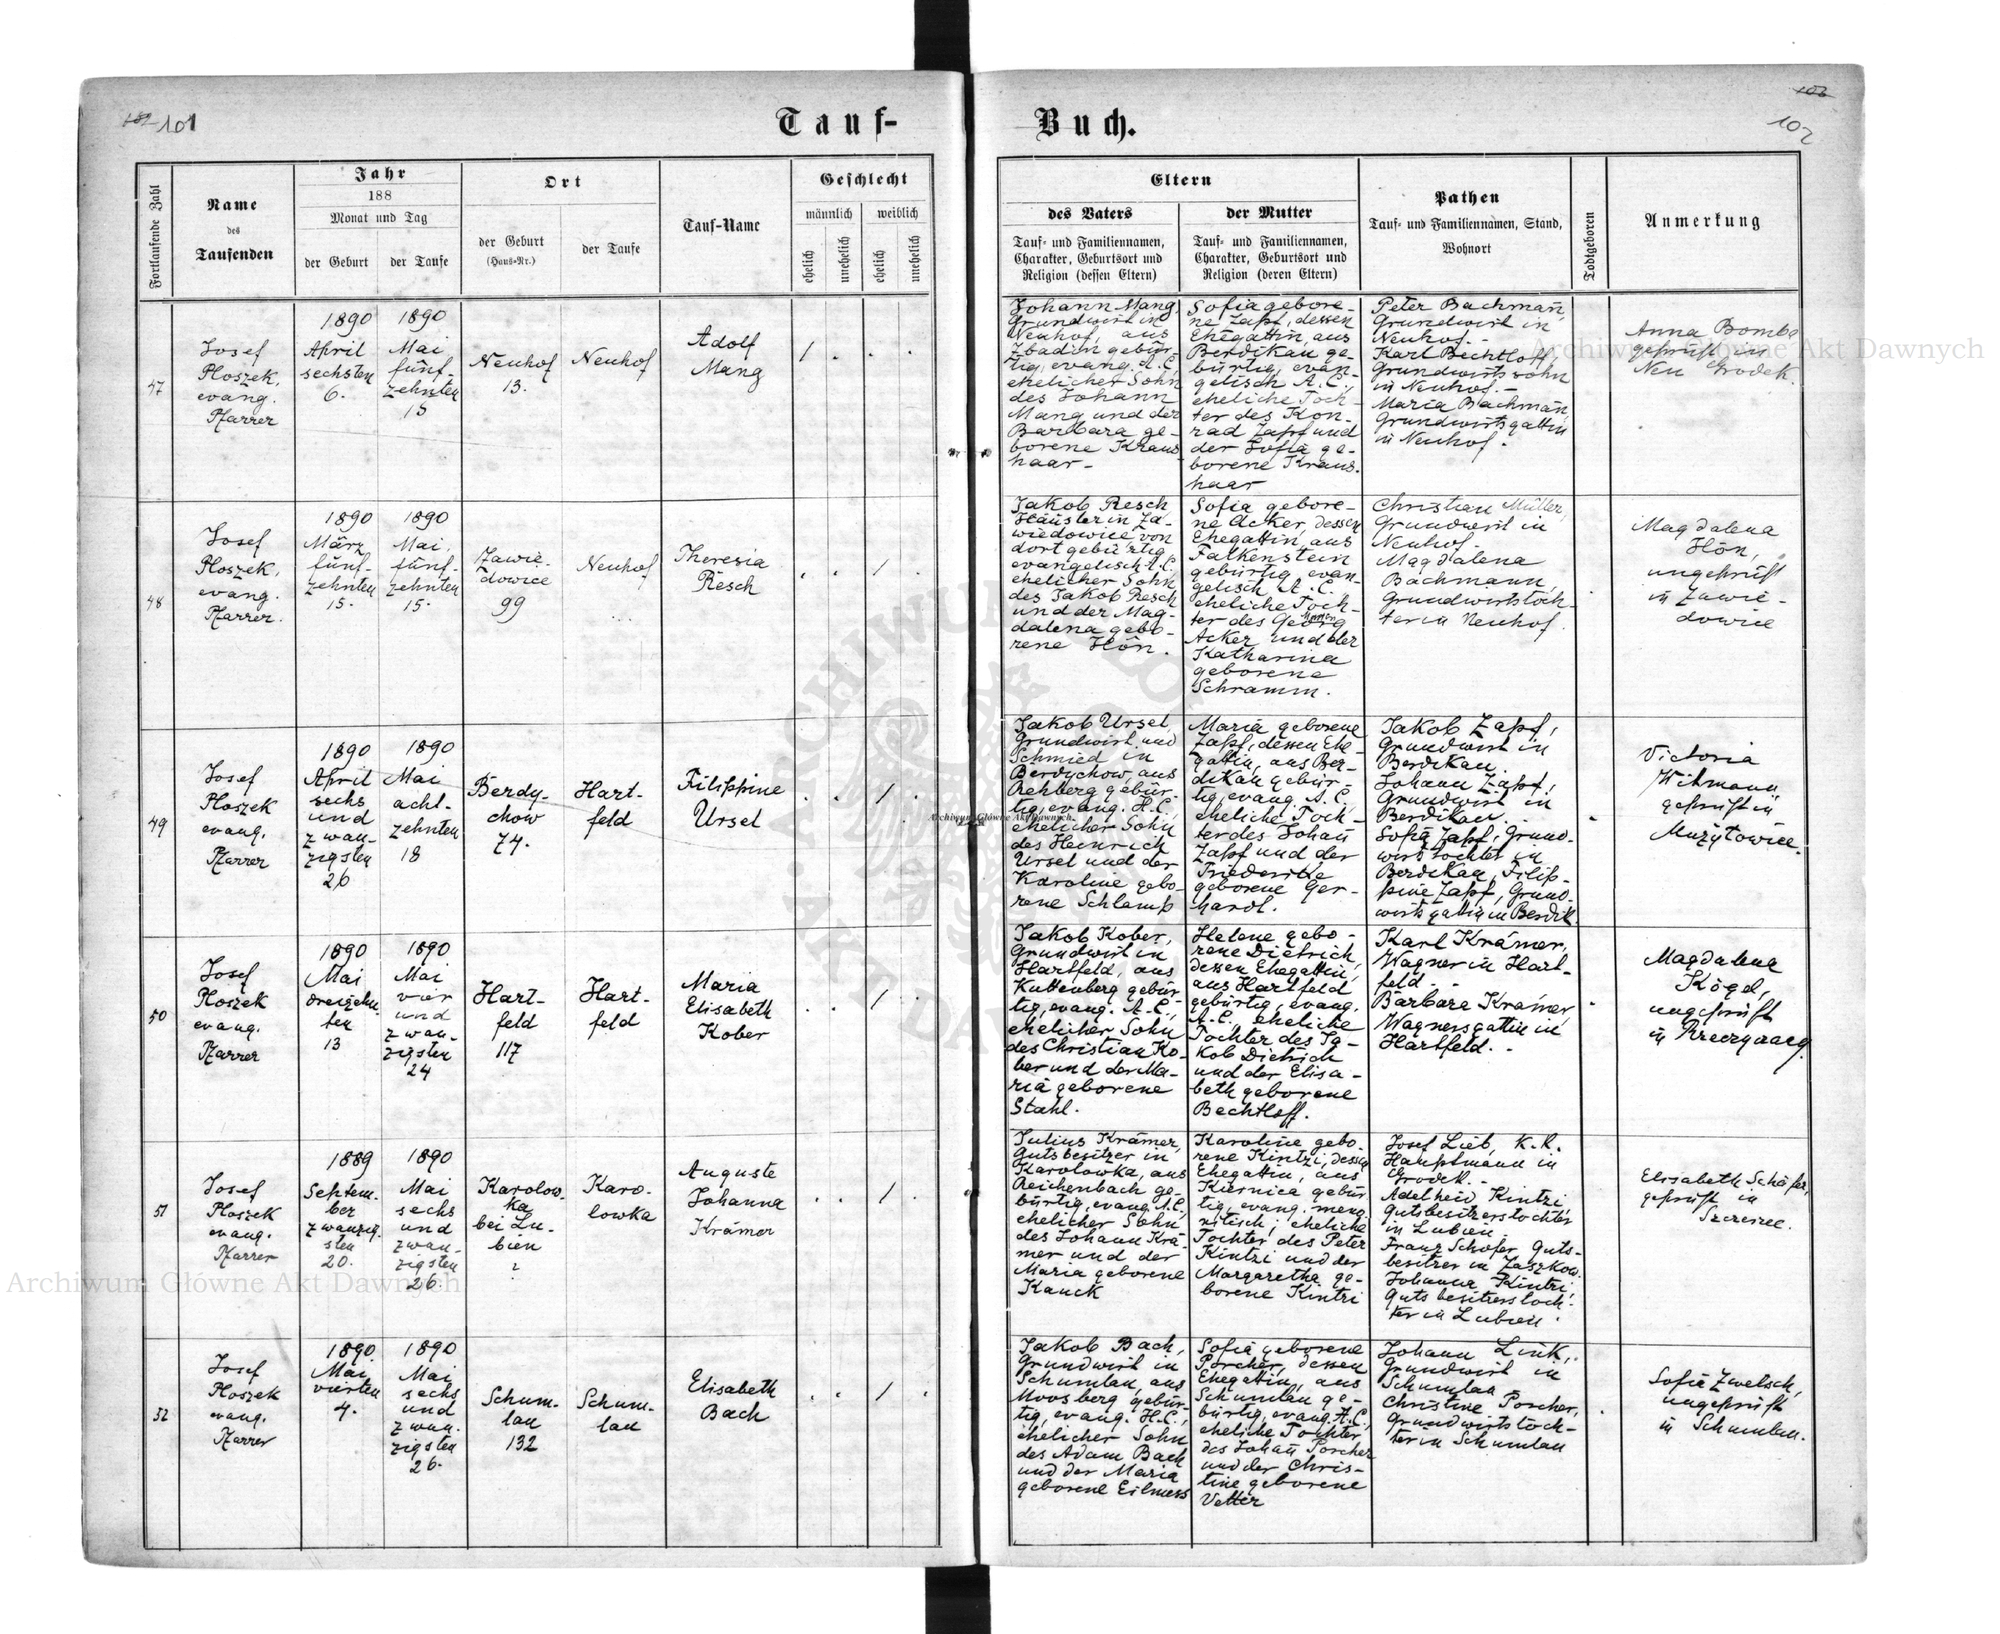 101
Tauf-
Buch.
102
Fortlaufende Zahl
Name
des
Taufenden
Jahr
188
Monat und Tag
der Geburt
der Taufe
Ort
der Geburt
(Haus-Nr.)
der Taufe
Tauf-Name
Geschlecht
männlich
weiblich
ehelich
unehelich
ehelich
unehelich
Eltern
des Vaters
Tauf- und Familiennamen,
Charakter, Geburtsort und
Religion (dessen Eltern)
der Mutter
Tauf- und Familiennamen,
Charakter, Geburtsort und
Religion (deren Eltern)
Pathen
Tauf- und Familiennamen, Stand,
Wohnort
Todtgeboren
Anmerkung
47
Josef
Ploszek,
evang.
Pfarrer
1890
April
sechsten
6.
1890
Mai
fünf-
zehnten
15
Neuhof
13.
Neuhof
Adolf
Mang
Johann Mang,
Grundwirt in
Neuhof, aus
Zbadin gebür-
tig, evang. A.C.,
ehelicher Sohn
des Johann
Mang und der
Barbara ge-
borene Kraus
haar-
Sofia gebore-
ne Zapf, dessen
Ehegattin, aus
Berdikau ge-
bürtig, evan-
gelisch A.C.,
eheliche Toch-
ter des Kon-
rad Zapf und
der Sofia ge-
borene Kraus-
haar
Peter Bachmañ,
Grundwirt in
Neuhof.-
Karl Bechtloff,
Grundwirtssohn
in Neuhof.-
Maria Bachmañ,
Grundwirtsgattin
in Neuhof.
Anna Bombe
geprüft in
Neu Grodek.
48
Josef
Ploszek,
evang.
Pfarrer.
1890
März
fünf-
zehnten
15.
1890
Mai,
fünf-
zehnten
15.
Zawie-
dowice
99
Neuhof
Theresia
Resch
Jakob Resch
Häusler in Za-
wiedowice von
dort gebürtig,
evangelisch A.C.
ehelicher Sohn
des Jakob Resch
und der Mag-
dalena gebo-
rene Hön.
Sofia gebore-
ne Acker, dessen
Ehegattin, aus
Falkenstein
gebürtig, evan-
gelisch A.C.
eheliche Toch-
ter des Georg
Acker und der
Katharina
geborene
Schramm.
Christian Müller,
Grundwirt in
Neuhof.
Magdalena
Bachmann,
Grundwirtstoch-
ter in Neuhof.
Magdalena
Hön,
ungeprüft
in Zawie-
dowice
49
Josef
Ploszek
evang.
Pfarrer
1890
April
sechs
und
zwan-
zigsten
26
1890
Mai
acht-
zehnten
18
Berdy-
chow
74.
Hart-
feld
Filippine
Ursel
Jakob Ursel
Grundwirt und
Schmied in
Berdychow, aus
Rehberg gebür-
tig, evang. H.C.,
ehelicher Sohn
des Heinrich
Ursel und der
Karoline gebo-
rene Schlamp
Maria geborene
Zapf, dessen Ehe-
gattin, aus Ber-
dikau gebür-
tig, evang. A.C.,
eheliche Toch-
ter des Johañ
Zapf und der
Friederike
geborene Ger-
hardt.
Jakob Zapf,
Grundwirt in
Berdikau.
Johann Zapf,
Grundwirt in
Berdikau.
Sofia Zapf, Grund-
wirtstochter in
Berdikau, Filip-
pine Zapf, Grund-
wirtsgattin in Berdik.
Victoria
Witmann,
geprüft in
Mużytowice.
50
Josef
Ploszek
evang.
Pfarrer
1890
Mai
dreizehn-
ten
13
1890
Mai
vier
und
zwan-
zigsten
24
Hart-
feld
117
Hart-
feld
Maria
Elisabeth
Kober
Jakob Kober,
Grundwirt in
Hartfeld, aus
Kuttenberg gebür-
tig, evang. A.C.,
ehelicher Sohn
des Christian Ko-
ber und der Ma-
ria geborene
Stahl.
Helene gebo-
rene Dietrich,
dessen Ehegattin,
aus Hartfeld
gebürtig, evang.
A.C., eheliche
Tochter des Ja-
kob Dietrich
und der Elisa-
beth geborene
Bechtloff.
Karl Krämer,
Wagner in Hart-
feld.-
Barbara Krämer,
Wagnersgattin in
Hartfeld.-
Magdalena
Kögel,
ungeprüft
in
51
Josef
Ploszek
evang.
Pfarrer
1889
Septem-
ber
zwanzig-
sten
20.
1890
Mai
sechs
und
zwan-
zigsten
26.
Karolow-
ka
bei Lu-
bien
?
Karo-
lowka
Auguste
Johanna
Krämer
Julius Krämer,
Gutsbesitzer in
Karolowka, aus
Reichenbach ge-
bürtig, evang. A.C.,
ehelicher Sohn
des Johann Krä-
mer und der
Maria geborene
Kauck
Karoline gebo-
rene Kintzi, dessen
Ehegattin, aus
Kiernica gebür-
tig, evang. meno-
nitisch, eheliche
Tochter des Peter
Kintzi und der
Margaretha ge-
borene Kintzi
Josef Lieb, K.K.
Hauptmann in
Grodek.-
Adelheid Kintzi
Gutsbesitzerstochter
in Lubien.
Franz Schofer, Guts-
besitzer in Zaszkow.
Johanna Kintzi,
Gutsbesitzerstoch-
ter in Lubien.
Elisabeth Schäfer,
geprüft in
Szczerzec.
52
Josef
Ploszek
evang.
Pfarrer
1890
Mai
vierten
4.
1890
Mai
sechs
und
zwan-
zigsten
26.
Schum-
lau
132
Schum-
lau
Elisabeth
Bach
Jakob Bach,
Grundwirt in
Schumlau, aus
Moosberg gebür-
tig, evang. H.C.,
ehelicher Sohn
des Adam Bach
und der Maria
geborene Eilmess
Sofia geborene
Porcher, dessen
Ehegattin, aus
Schumlau ge-
bürtig, evang. A.C.,
eheliche Tochter
des Johañ Porcher
und der Chris-
tine geborene
Vetter
Johann Link,
Grundwirt in
Schumlau
Christine Porcher,
Grundwirtstoch-
ter in Schumlau
Sofia Zwetsch,
ungeprüft
in Schumlau.
Archiwum Główne Akt Dawnych
Archiwum Główne Akt Dawnych
Archiwum Główne Akt Dawnych